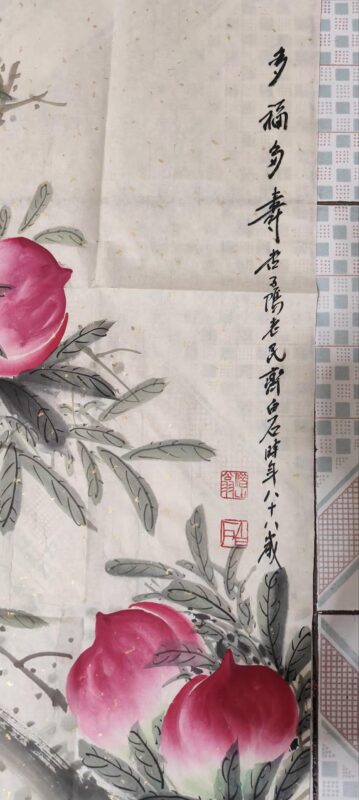 多福多寿杏子隖老民齊白石時年八十八歲
白石